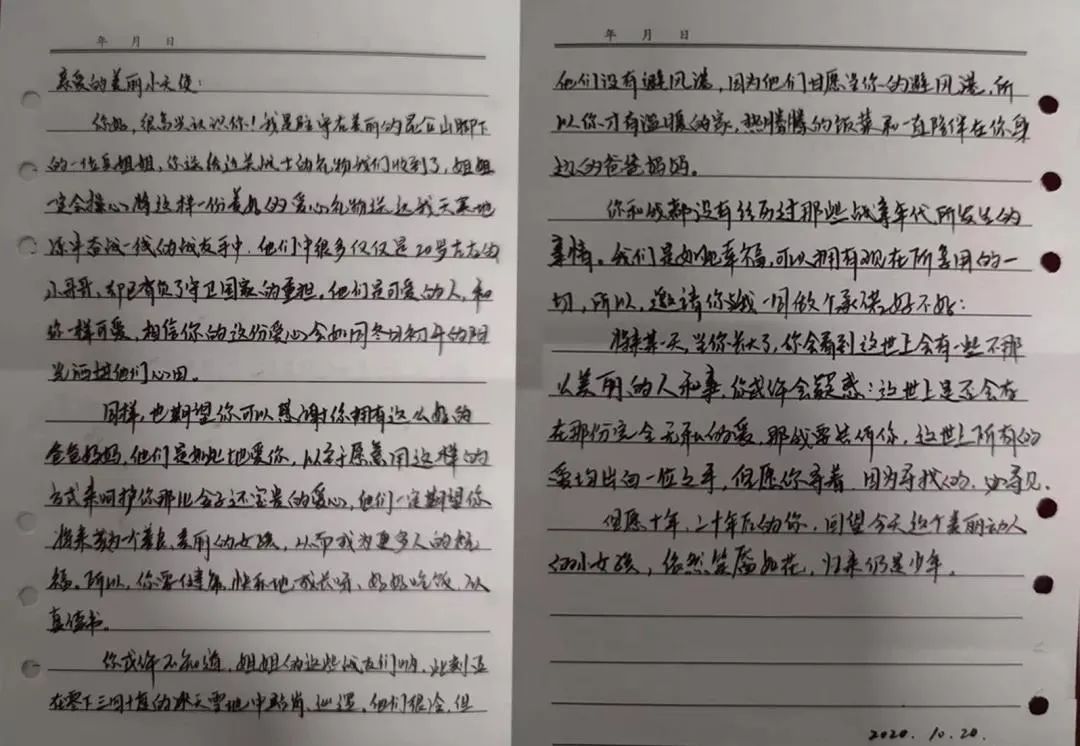 年 月 日
亲爱的美丽小天使：
你好，很高兴认识你！我是驻守在美丽的昆仑山脚下
的一位兵姐姐，你送给边关战士的礼物我们收到了，姐姐
定会操心将这样一份美好的爱心礼物送达我天寒地
冻奋战一线的战友手中，他们中很多仅仅是20岁左右的
小哥哥，却已肩负了守卫国家的重担。他们是可爱的人，和
你一样可爱，相信你的这份爱心会如同冬日初升的阳
光洒进他们心田。
同样，也期望你可以感谢你拥有这么好的
爸爸妈妈，他们是如此地爱你，以至于愿意用这样的
方式来呵护你那比金子还宝贵的爱心，他们一定期望你
将来成为一个善良、美丽的女孩，从而成为更多人的祝
福。所以，你要健康、快乐地成长呀，好好吃饭，认
真读书。
你或许不知道，姐姐的这些战友们呐，此刻正
在零下三四十度的冰天雪地中站岗、巡逻，他们很冷，但
年 月 日
他们没有避风港，因为他们甘愿当你的避风港，所
以你才有温暖的家，热腾腾的饭菜和一直陪伴在你身
边的爸爸妈妈。
你和我都没有经历过那些战争年代所发生的
事情。我们是如此幸福，可以拥有现在所享用的一
切，所以，邀请你与我一同做个承诺好不好：
将来某一天，当你长大了，你会看到这世上会有一些不那
么美丽的人和事，你或许会疑惑：这世上是否会存
在那份完全无私的爱，那我要告诉你，这世上所有的
爱均出自一位之手，但愿你寻着，因为寻找的，必寻见。
但愿十年、二十年后的你，回望今天这个美丽动人
的小女孩，依然笑靥如花，归来仍是少年。
2020.10.20.